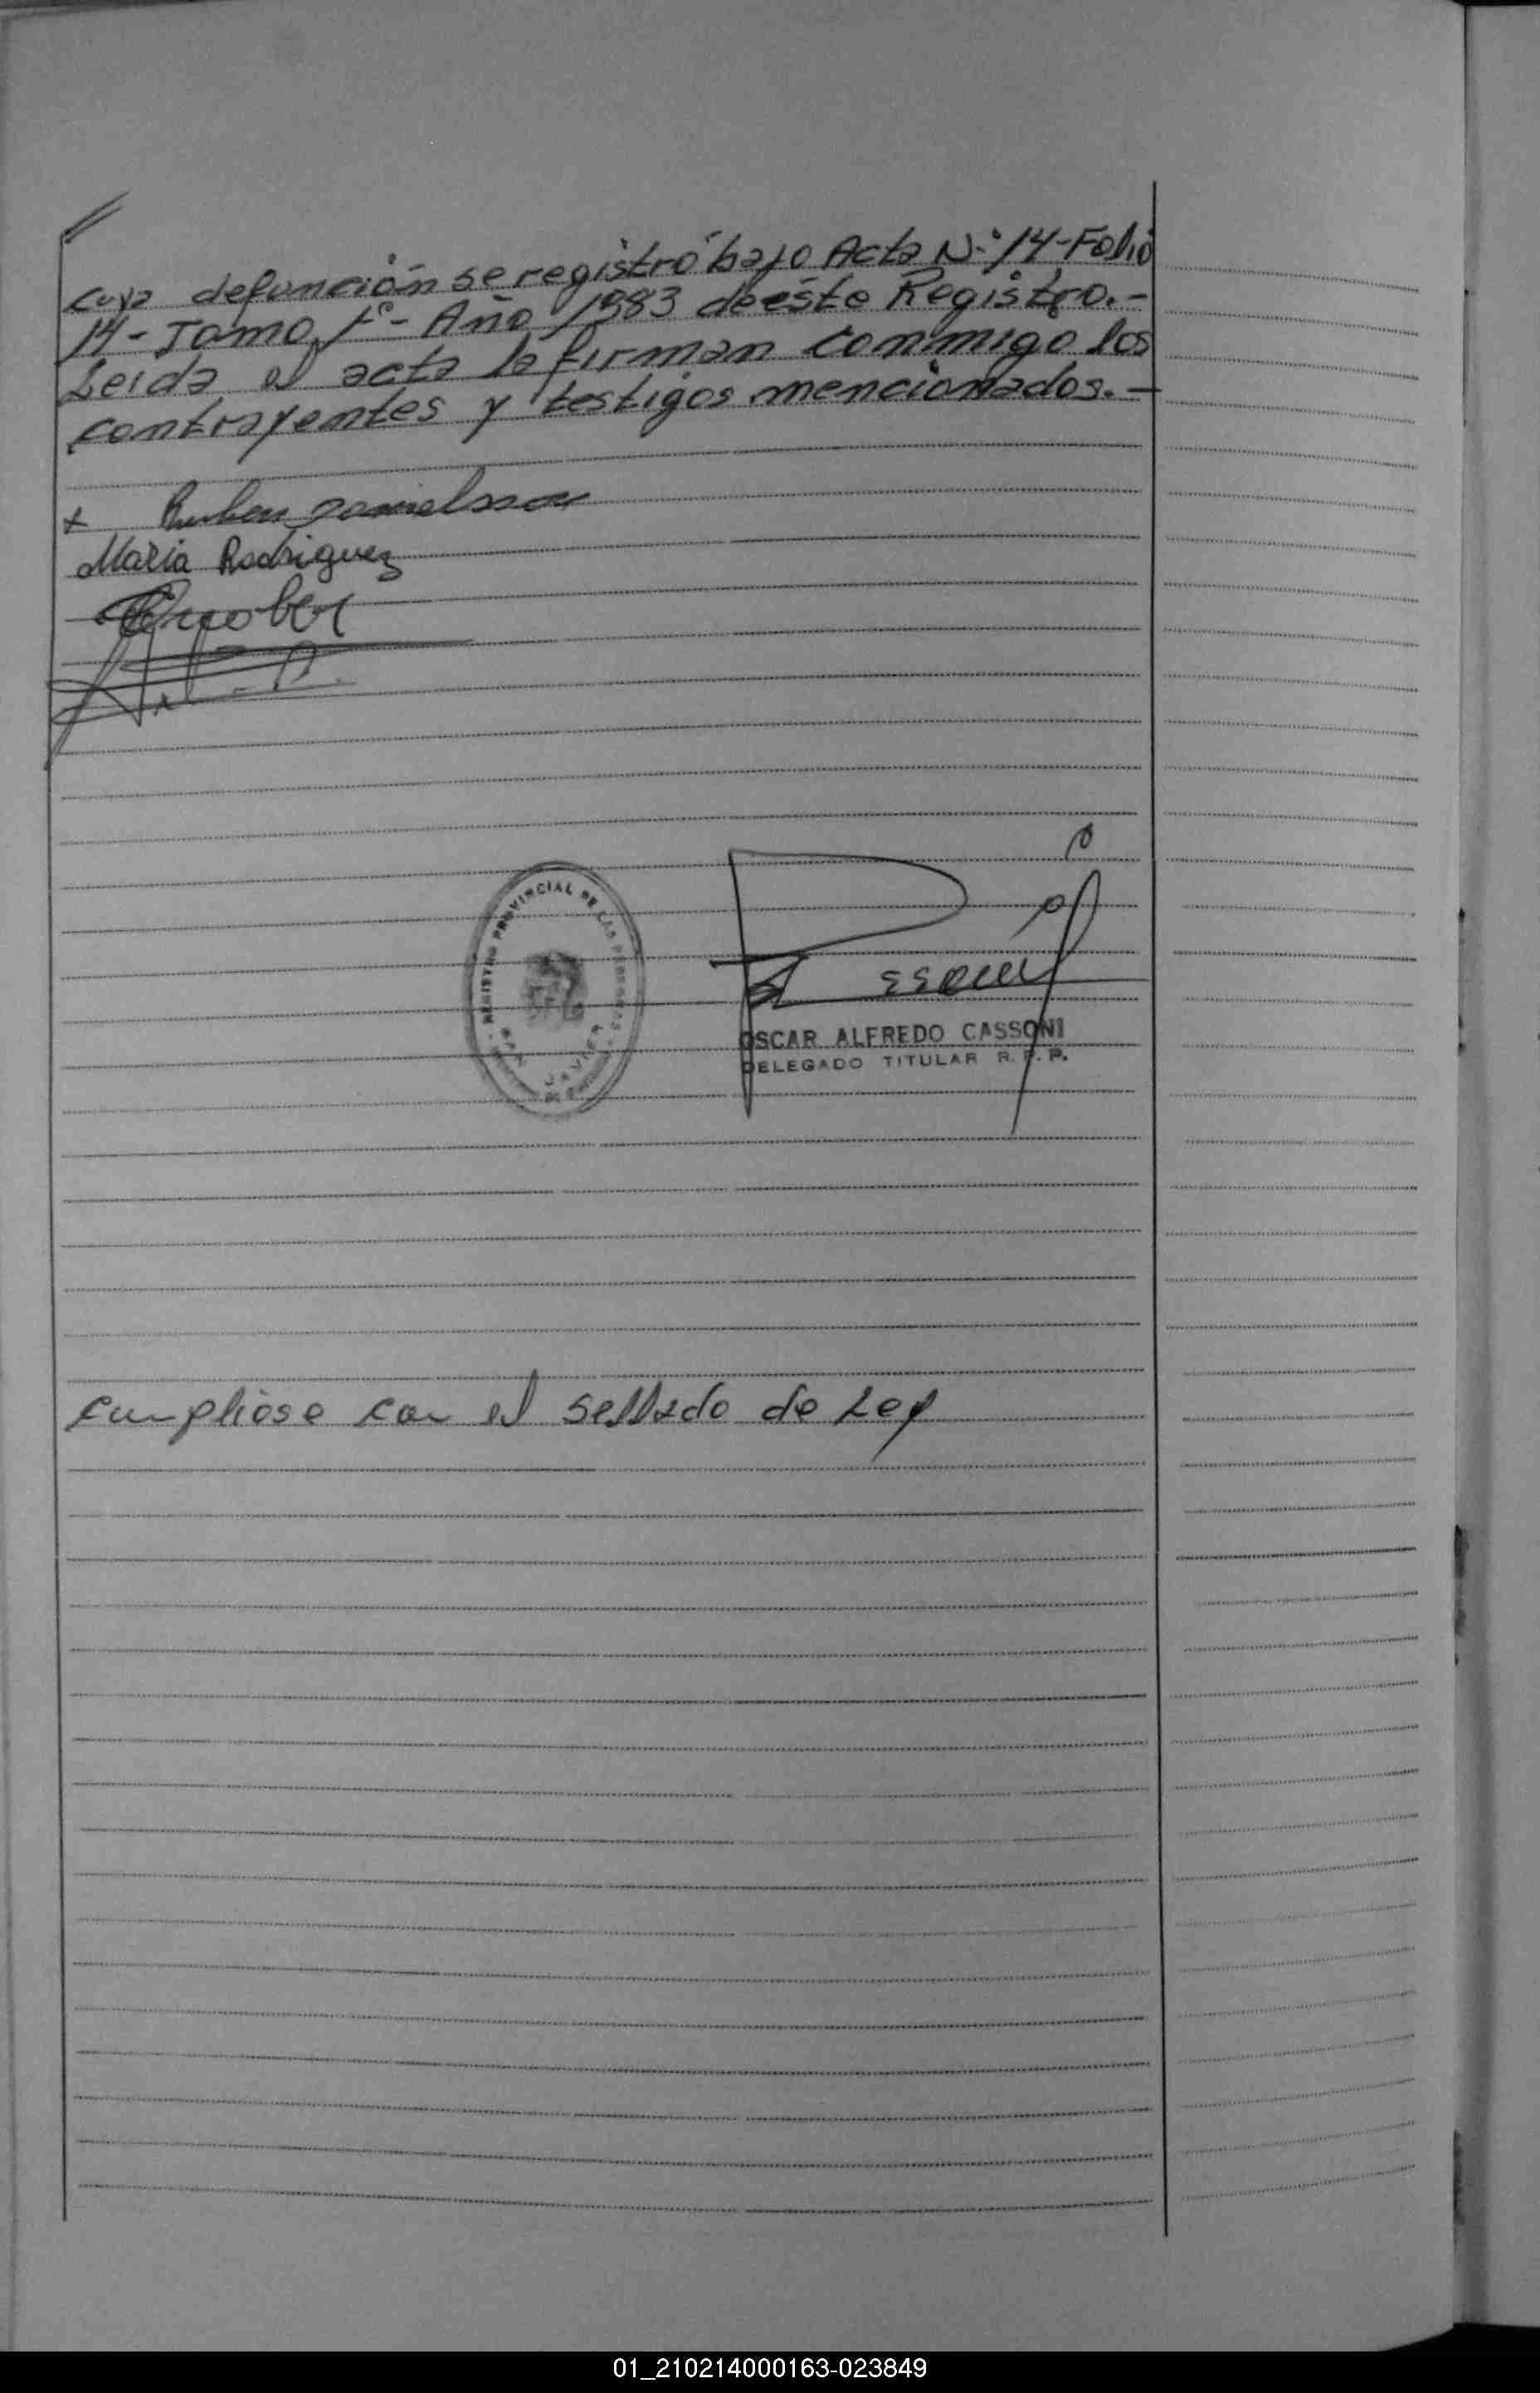 cuya defunción se registró bajo Acta N° 14-Folio
14-Tomo 1°- Año 1983 de éste Registro.-
Leida el acta la firman conmigo los
contrayentes y testigos mencionados.-
x Ruben Danielsson
Maria Rodriguez
REGISTRO PROVINCIAL DE LAS PERSONAS
SAN JAVIER
OSCAR ALFREDO CASSONI
DELEGADO TITULAR R. P. P.
Cumpliose con el sellado de Ley
01_210214000163-023849